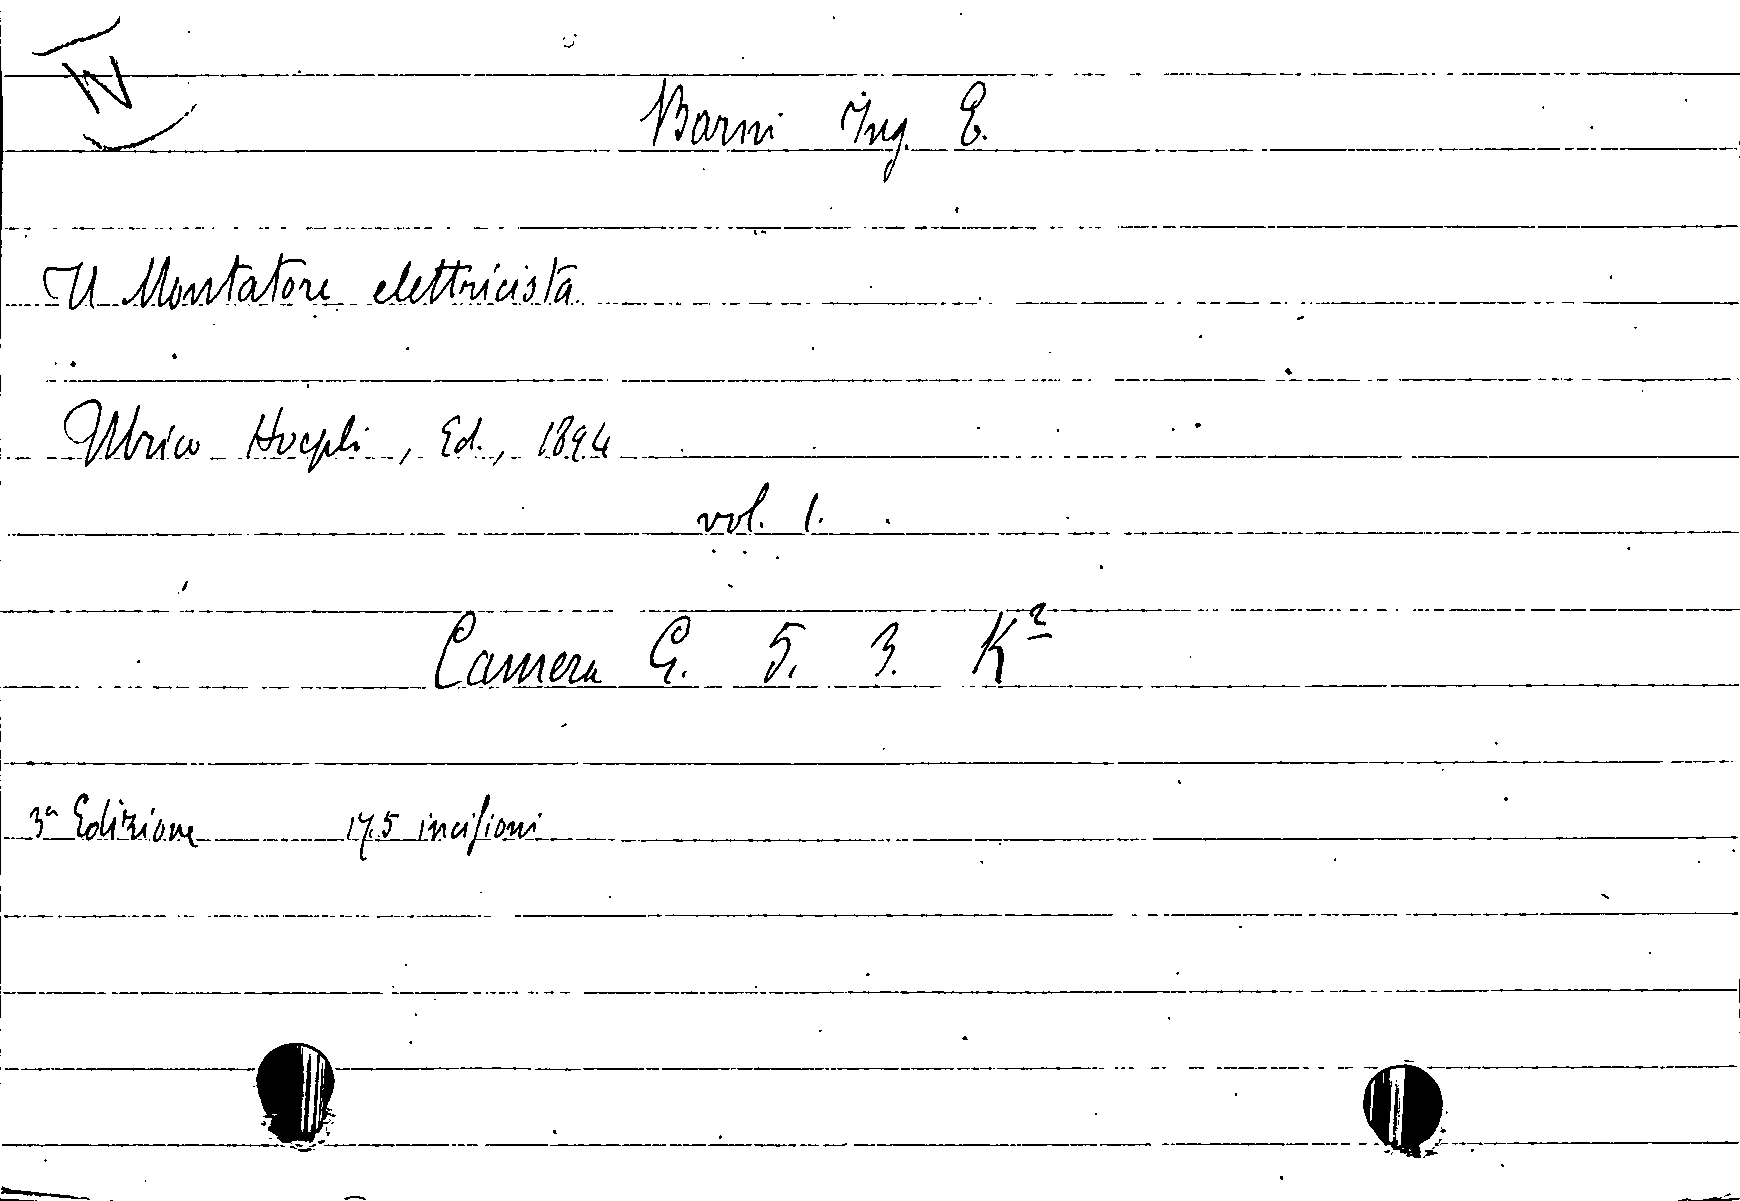 Barni Ing. E.
Il Montatore elettricista
Ulrico Hoepli, Ed., 1894
vol. 1.
Camera G. 5. 3. K²
3ª Edizione 175 incisioni